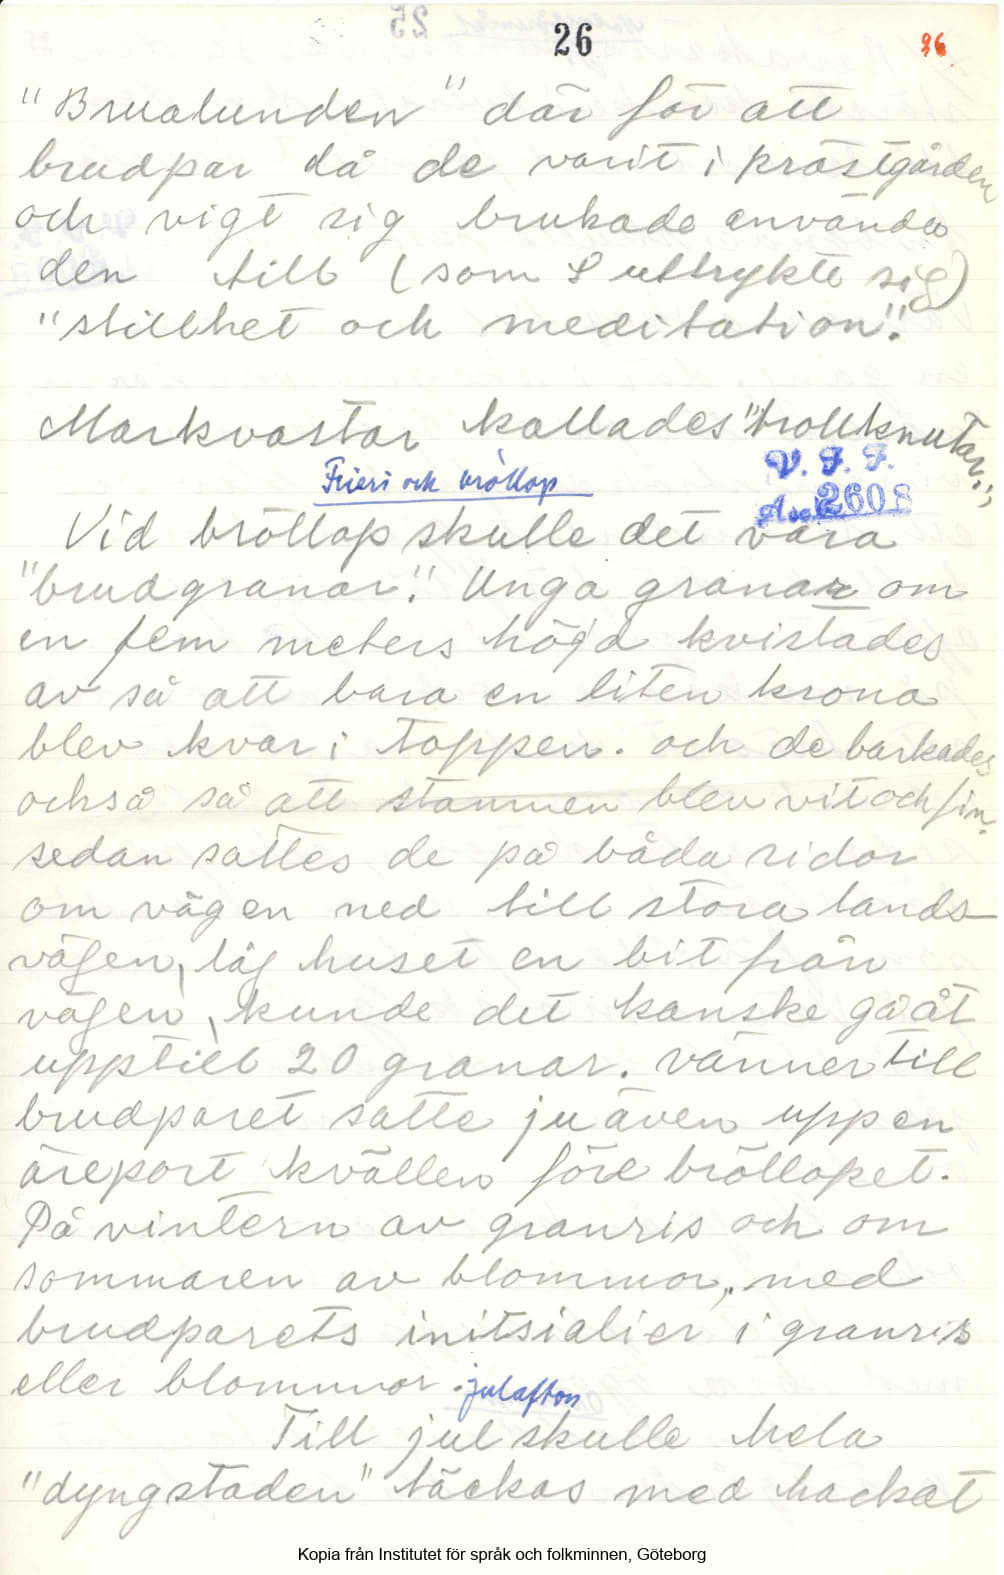 26
26
"Brualunden" där för att
brudpar då de varit i prästgården
och vigt sig brukade använda
den till (som S uttrykte sig)
"stillhet och meditation".
Markvastar kallades "trollknutar".
Frieri och bröllop
V. F. F.
Acc. 2608
Vid bröllop skulle det vara
"brudgranar". Unga granar om
en fem meters höjd kvistades
av så att bara en liten krona
blev kvar i toppen. och de barkades
också så att stammen blev vit och fin.
sedan sattes de på båda sidor
om vägen ned till stora lands-
vägen, låg huset en bit från
vägen, kunde det kanske gå åt
upptill 20 granar. vänner till
brudparet satte ju även upp en
äreport kvällen före bröllopet.
På vintern av granris och om
sommaren av blommor, med
brudparets initsialier i granris
eller blommor.
julafton
Till jul skulle hela
"dyngstaden" täckas med hackat
Kopia från Institutet för språk och folkminnen, Göteborg